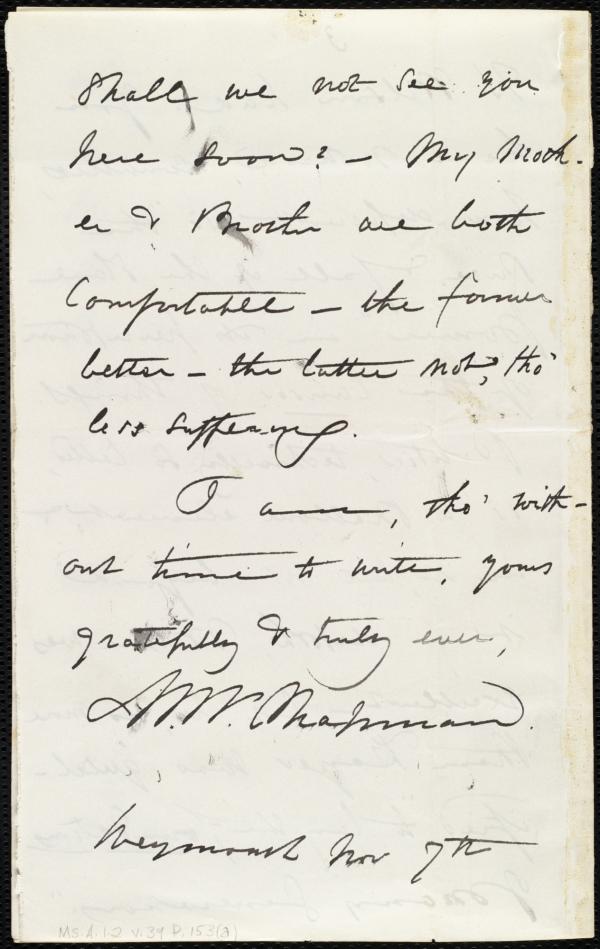 Shall we not see you
here soon? – My Moth-
er & Brother are both
Comfortable – the former
better – the latter not, tho'
less suffering.
I am, tho' with-
out time to write, yours
gratefully & truly ever,
M. W. Chapman.
Weymouth Nov 7th
Ms.A.1.2 v.39 P.153(a)